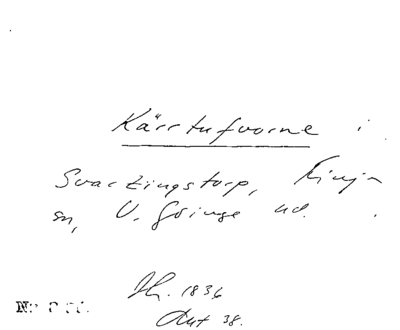 Kärrtufvorne i
Svartingstorp, Finja
sn, V. Göinge hd.
Jh. 1836
Akt 38.